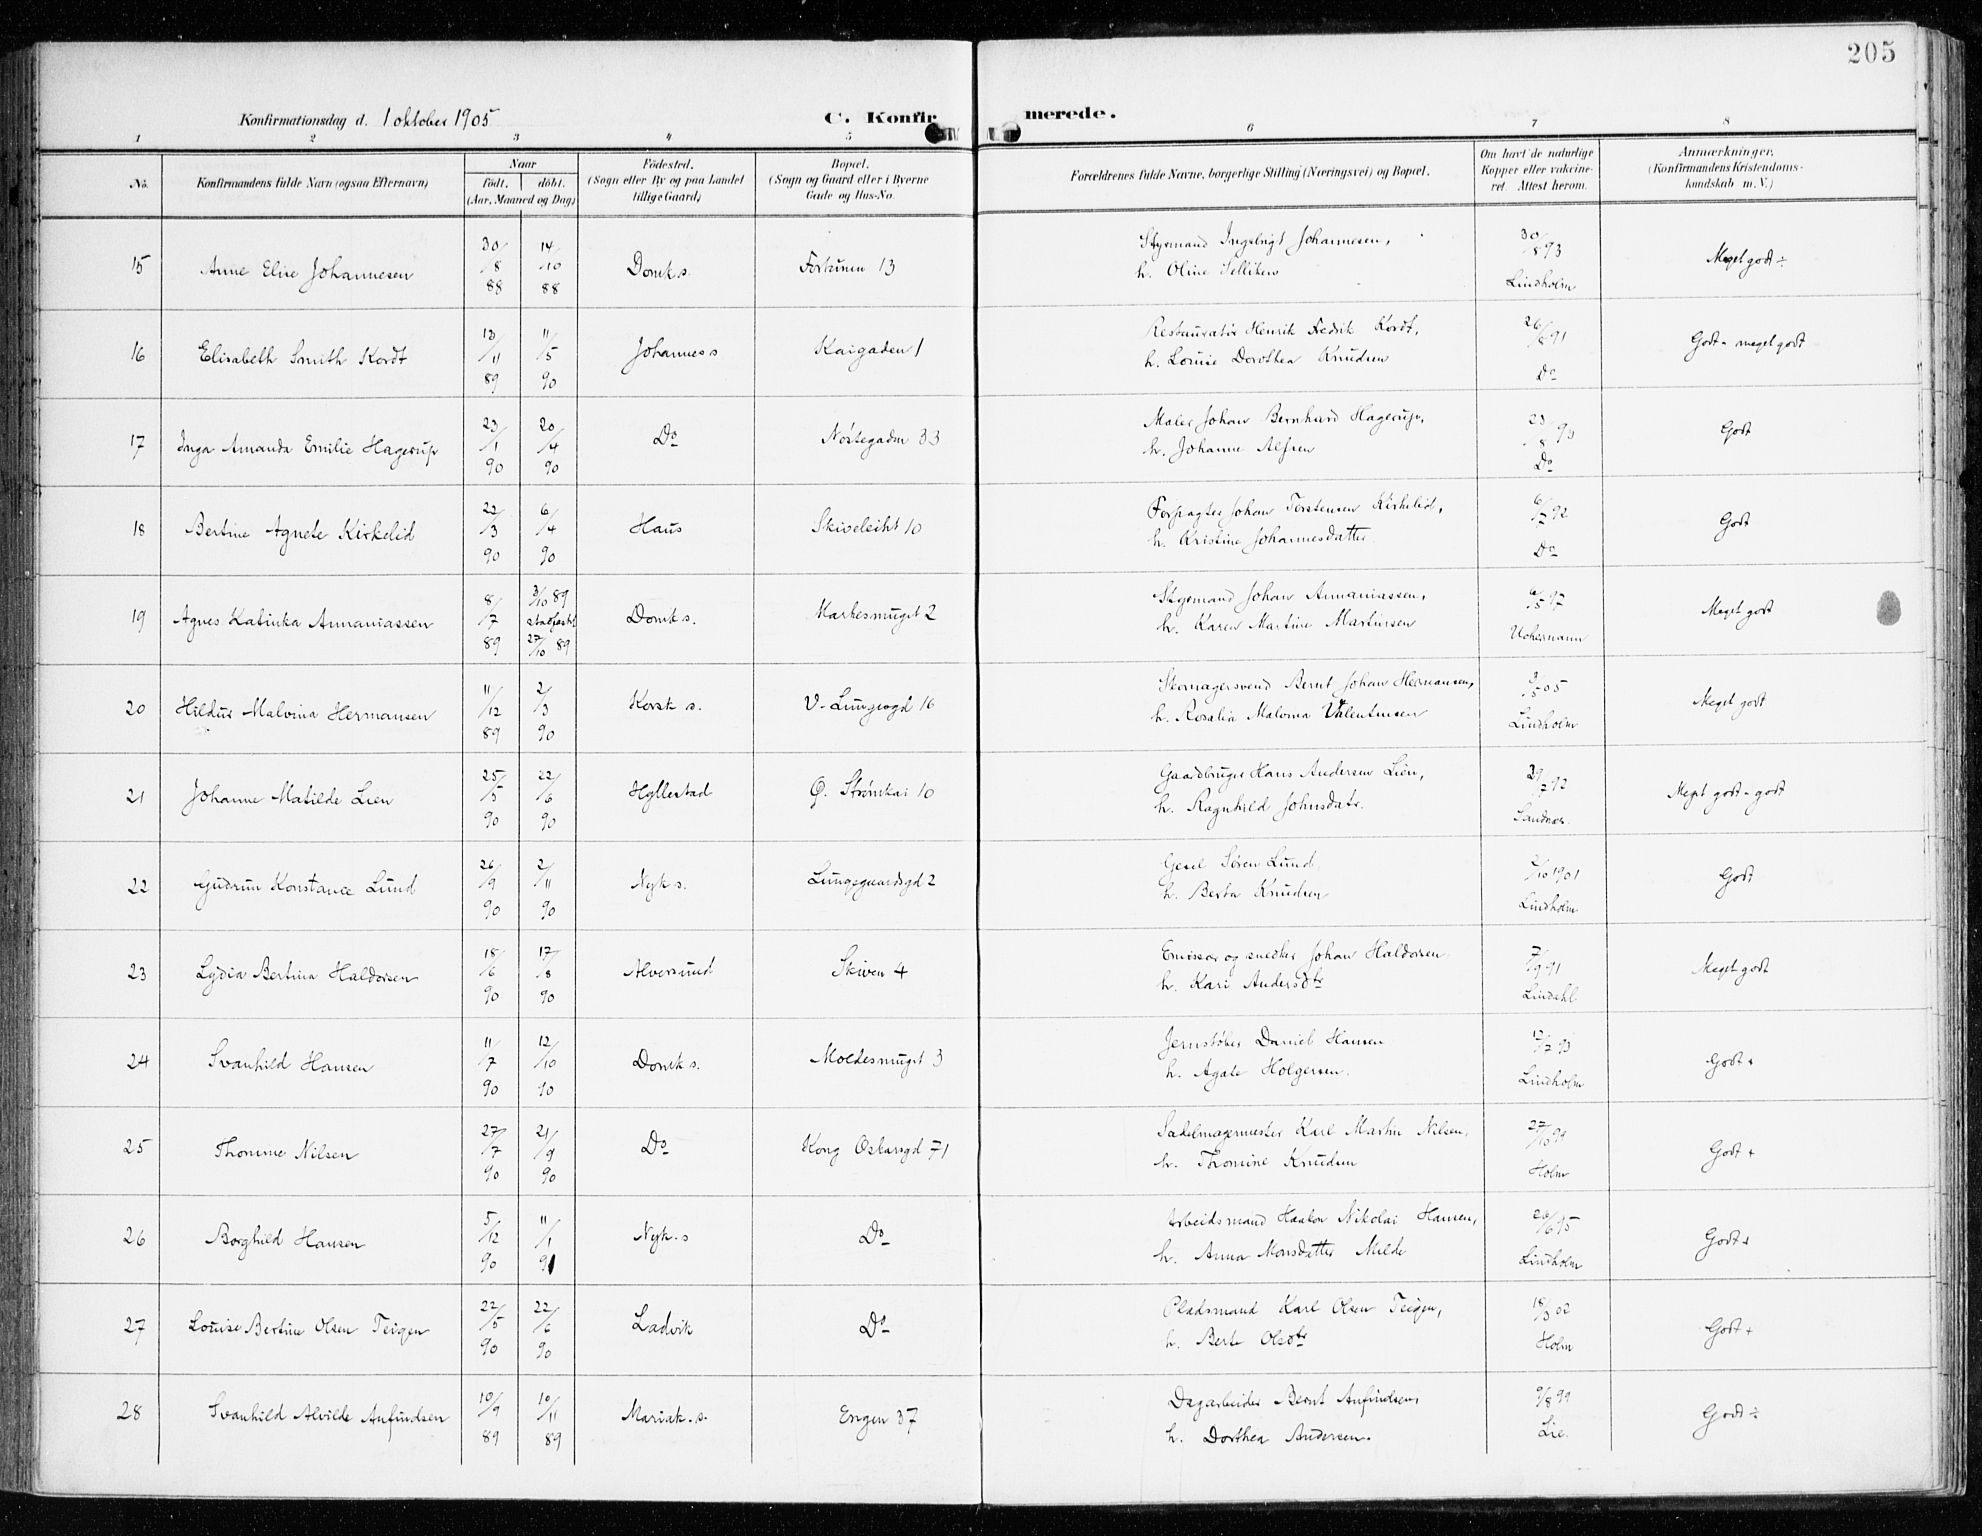 205
Konfirmationsdag d. 1 oktober 1905
C. Konfir merede.
1 2 3 4 5 6 7 8
No.
Konfirmandens fulde Navn (ogsaa Efternavn)
Naar
født. døbt.
(Aar, Maaned og Dag)
Fødested.
(Sogn eller By og paa Landet
tillige Gaard)
Bopæl.
(Sogn og Gaard eller i Byerne
Gade og Hus-No.
Forældrenes fulde Navne, borgerlige Stilling (Næringsvei) og Bopæl.
Om havt de naturlige
Kopper eller vakcine-
ret. Attest herom.
Anmærkninger.
(Konfirmandens Kristendoms-
kundskab m. V.)
15 Anne Elise Johannesen 30/8 88 14/10 88 Domk s. Fortunen 13
Styrmand Ingebrigt Johannesen,
h. Oline Selliken
30/8 93 Lindholm
Meget godt ÷
16 Elisabeth Smith Kordt 13/11 89 11/5 90 Johannes s Kaigaden 1
Restauratør Henrik Fredrik Kordt,
h. Louise Dorothea Knudsen
26/8 91 Do
Godt - meget godt
17 Inga Amanda Emilie Hagerup 23/1 90 20/4 90 Do Nøstegaden 33
Maler Johan Bernhard Hagerup,
h. Johanne Alfsen
23/8 93 Do
Godt
18 Bertine Agnete Kirkelid 22/3 90 6/4 90 Haus Skivebeiht 10
Forpagter Johan Torstensen Kirkelid,
h. Kristine Johannesdatter
6/7 92 Do
Godt
19 Agnes Katinka Annaniassen 8/7 89 3/10 89 stadfæstet 27/10 89 Domk s. Markesmuget 2
Styrmand Johan Annaniassen,
h. Karen Martine Martinsen
6/5 97 Uchermann
Meget godt
20 Hildur Malvina Hermansen 11/12 89 2/3 90 Korsk s. V. Lungegd 16
Skomagersvend Bernt Johan Hermansen,
h. Rosalia Malvina Valentinsen
3/5 05 Lindholm
Meget godt
21 Johanne Matilde Lien 25/5 90 22/6 90 Hyllestad Ø. Strømkai 10
Gaardbruger Hans Andersen Lien,
h. Ragnhild Johnsdatr.
29/7 92 Sandnæs.
Meget godt - godt
22 Gudrun Konstance Lund 26/9 90 2/11 90 Nyk s. Lungegaardsgd 2
Gesel Søren Lund,
h. Berta Knudsen
2/10 1901 Lindholm
Godt
23 Lydia Bertina Haldorsen 18/6 90 17/8 90 Alversund Skiven 4
Emissær og snedker Johan Haldorsen
h. Kari Andersdtr
7/9 91 Lindahl
Meget godt
24 Svanhild Hansen 11/7 90 12/10 90 Domk s. Moldesmuget 3
Jernstøber Daniel Hansen
h. Agate Holgersen.
12/7 93 Lindholm
Godt +
25 Thomine Nilsen 27/7 90 21/9 90 Do Kong Oskarsgd 71
Sadelmagermester Karl Martin Nilsen,
h. Tomine Knudsen
27/10 99 Holm
Godt +
26 Borghild Hansen 5/12 90 11/1 91 Nyk. s Do
Arbeidsmand Haakon Nikolai Hansen,
h. Anna Monsdatter Milde
20/6 95 Lindholm
Godt +
27 Louise Bertine Olsen Teigen 22/5 90 22/6 90 Ladvik Do
Pladsmand Karl Olsen Teigen,
h. Berte Olsdtr
18/3 02 Holm
Godt +
28 Svanhild Alvilde Anfindsen 10/9 89 10/11 89 Mariak. s. Engen 37
Dagarbeider Bernt Anfindsen,
h. Dorthea Andersen.
9/8 99 Lie.
Godt ÷